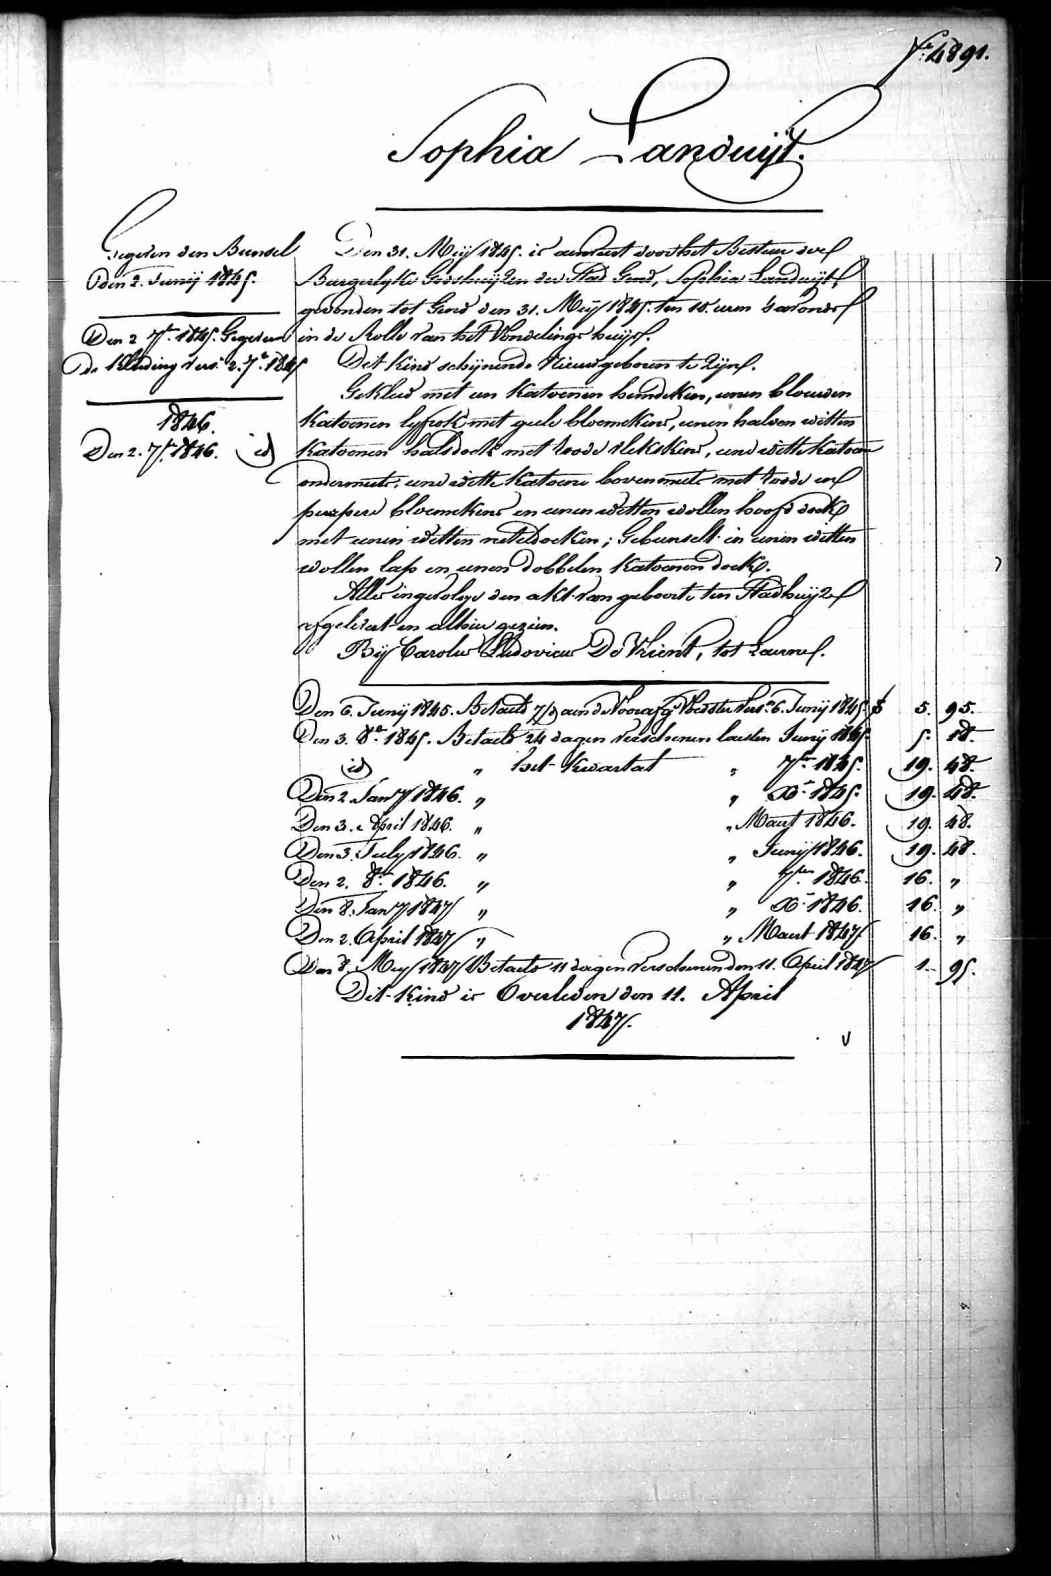 Nº 4891.
Sophia Landuijt.
Gegeven den Bunsel
den 2. Junij 1845.
Den 2 7bre 1845. Gegeven
De Kleeding vers. 2. 7bre 1845
1846.
Den 2. 7bre 1846. id
Den 31. Meij 1845. is aenveert door het Bestuer der
Burgerlyke Godshuijzen der Stad Gend, Sophia Landuijt,
gevonden tot Gend den 31. Meij 1845. ten 10. uren 's avonds
in de Rolle van het Vondelings huijs.
Dit Kind schijnende Nieuwgeboren te Zijn.
Gekleed met een Katoenen hemdeken, eenen blauwen
Katoenen lyfrok met geele bloemekens, eenen halven witten
Katoenen halsdoek met roode plekskens, eene witte Katoene
ondermuts, eene witte Katoene bovenmuts met roode en
purpere bloemekens en eenen witten wollen hoofd doek
met eenen witten neteldoeken; Gebunselt in eenen witten
wollen lap en eenen dobbelen Katoenen doek.
Alles ingevolge den akt van geboorte ten Stadhuijze
afgelevert en alhier gezien.
Bij Carolus Ludovicus De Vrient, tot Laerne.
Den 6. Junij 1845. Betaelt aen de Voorafg. Voedster vers. 6. Junij 1845. f 5. 95.
Den 3. 8bre 1845. Betaelt 24 dagen verschenen laesten Junij 1845. 5. 18.
id " het Kwartael " 7bre 1845. 19. 48.
Den 2. Janry 1846. " " Xbre 1845. 19. 48.
Den 3. April 1846. " " Maert 1846. 19. 48.
Den 3. July 1846. " " Junij 1846. 19. 48.
Den 2. 8bre 1846. " " 7bre 1846. 16. "
Den 8. Janry 1847 " " Xbre 1846. 16. "
Den 2. April 1847 " " Maert 1847 16. "
Den 8. Mey 1847 Betaelt 11 dagen verschenen den 11. April 1847 1. 95.
Dit Kind is Overleden den 11. April
1847.